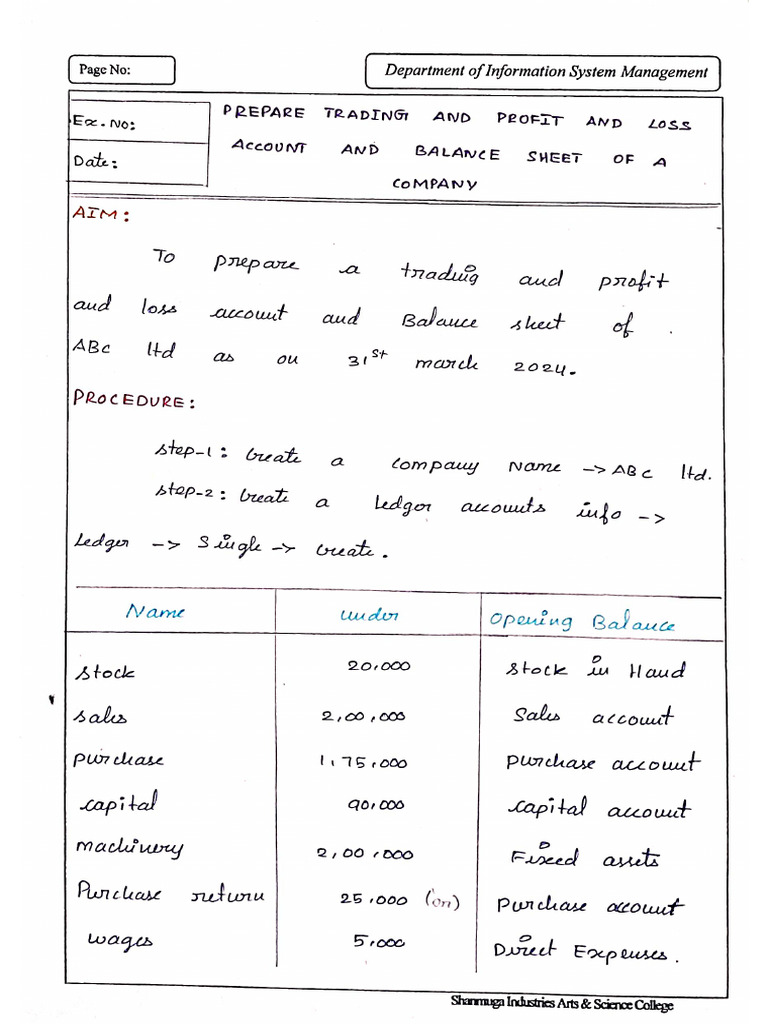 Page No:
Department of Information System Management
Ex. No:
Date:
PREPARE TRADING AND PROFIT AND LOSS
ACCOUNT AND BALANCE SHEET OF A
COMPANY
AIM:
To prepare a trading and profit
and loss account and Balance sheet of
ABC ltd as on 31st march 2024.
PROCEDURE:
step-1: Create a company Name -> ABC ltd.
step-2: Create a Ledgor accounts info ->
Ledger -> Single -> Create.
Name under Opening Balance
stock 20,000 stock in Hand
sales 2,00,000 Sales account
purchase 1,75,000 purchase account
capital 90,000 capital account
machinery 2,00,000 Fixed assets
Purchase return 25,000 (on) purchase account
wages 5,000 Direct Expenses.
Shanmuga Industries Arts & Science College